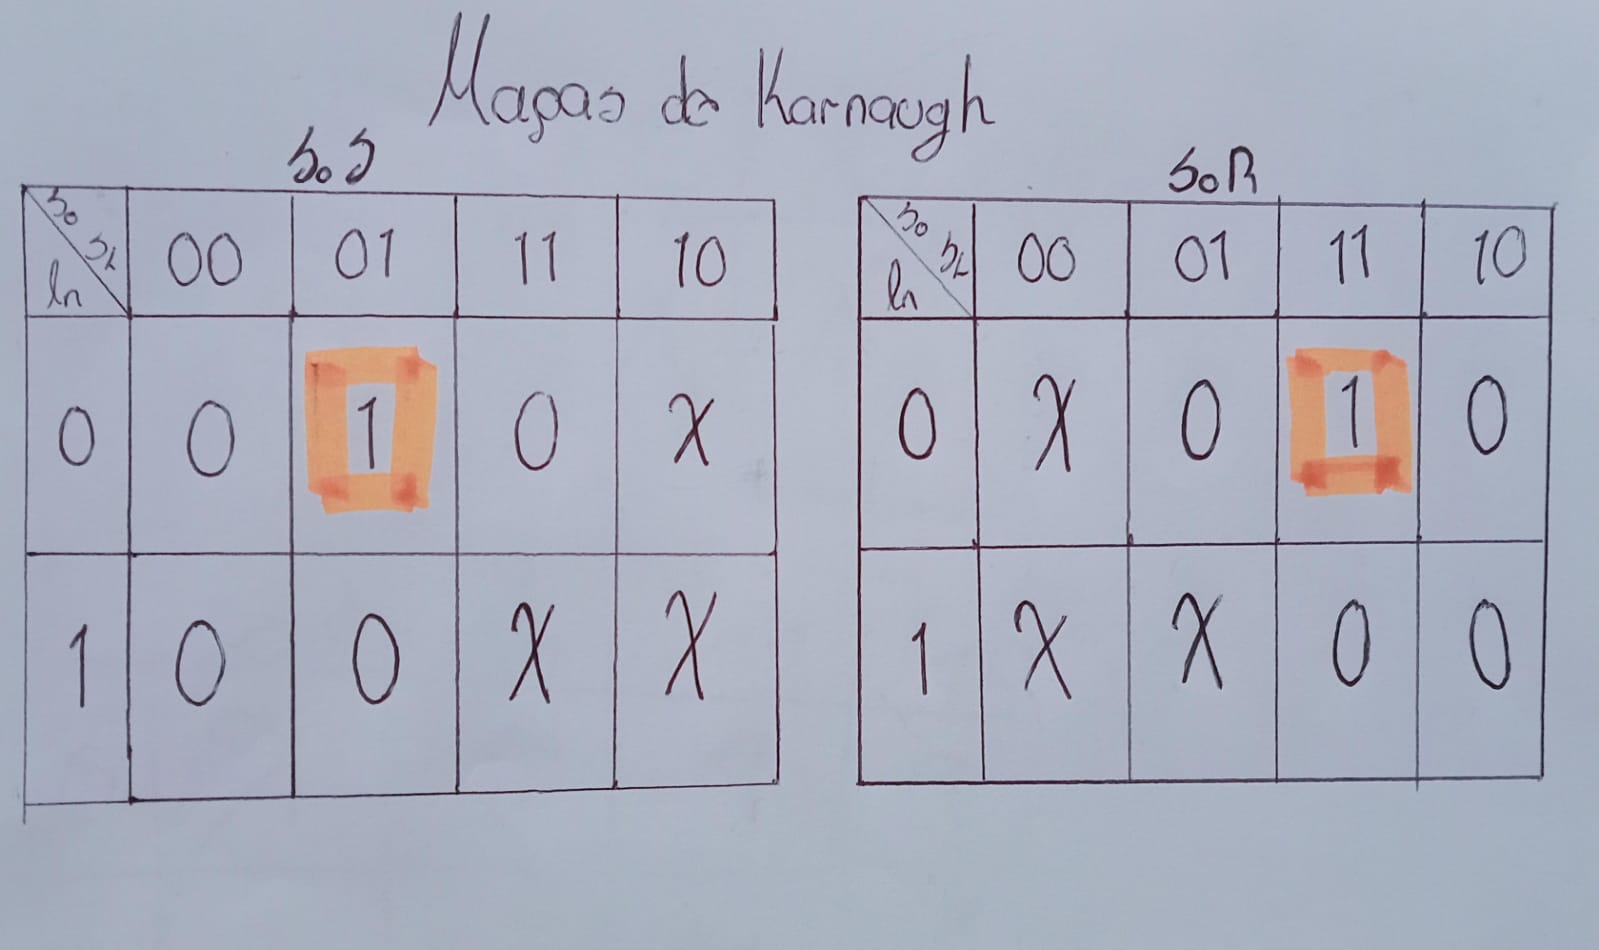 Mapas de Karnaugh
S₀S S₀R
S₀ S₁ ln 00 01 11 10
0 0 1 0 X
1 0 0 X X
S₀ S₁ ln 00 01 11 10
0 X 0 1 0
1 X X 0 0